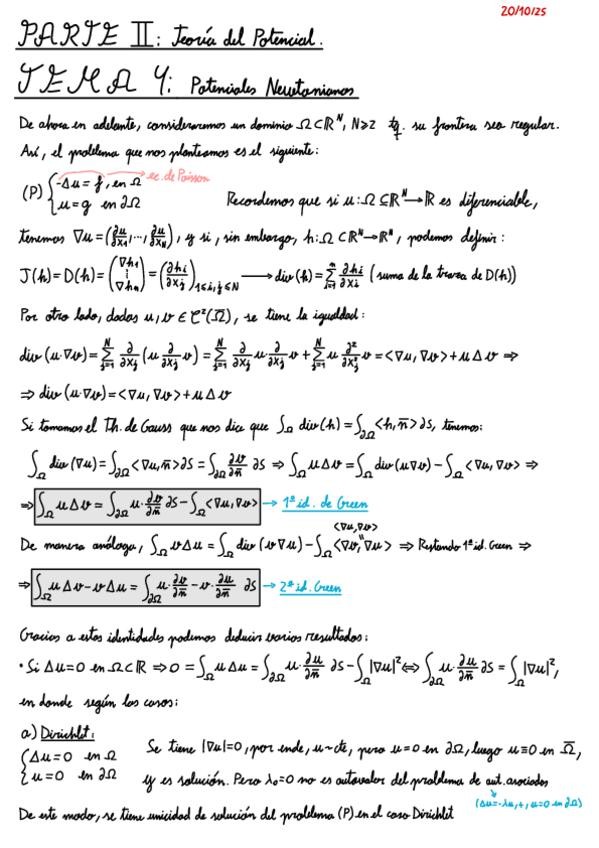 20/10/25
PARTE II: Teoría del Potencial.
TEMA 4: Potenciales Newtonianos
De ahora en adelante, consideraremos un dominio Ω⊂ℝᴺ, N⩾2 tq. su frontera sea regular.
Así, el problema que nos planteamos es el siguiente:
(P) { -Δu = f, en Ω → ec. de Poisson
u = g en ∂Ω
Recordemos que si u: Ω⊆ℝᴺ→ℝ es diferenciable,
tenemos ∇u = (∂u/∂x₁, ..., ∂u/∂x_N), y si, sin embargo, h: Ω⊂ℝᴺ→ℝᴺ, podemos definir:
J(h) = D(h) = (∇h₁ ⋮ ∇hₙ) = (∂hᵢ/∂xⱼ)₁≤i,j≤N → div(h) = Σᵢ₌₁ⁿ ∂hᵢ/∂xᵢ (suma de la traza de D(h))
Por otro lado, dadas u, v ∈ C²(Ω̅), se tiene la igualdad:
div(u·∇v) = Σⱼ₌₁ᴺ ∂/∂xⱼ (u ∂/∂xⱼ v) = Σⱼ₌₁ᴺ ∂/∂xⱼ u · ∂/∂xⱼ v + Σⱼ₌₁ᴺ u ∂²/∂xⱼ² v = <∇u, ∇v> + u Δv ⇒
⇒ div(u·∇v) = <∇u, ∇v> + u Δv
Si tomamos el Th. de Gauss que nos dice que ∫_Ω div(h) = ∫_∂Ω <h, n̅> ∂S, tenemos:
∫_Ω div(∇u) = ∫_∂Ω <∇u, n̅> ∂S = ∫_∂Ω ∂u/∂n̅ ∂S ⇒ ∫_Ω u Δv = ∫_Ω div(u∇v) - ∫_Ω <∇u, ∇v> ⇒
⇒ ∫_Ω u Δv = ∫_∂Ω u· ∂v/∂n̅ ∂S - ∫_Ω <∇u, ∇v> → 1ª id. de Green
<∇u, ∇v>
De manera análoga, ∫_Ω v Δu = ∫_Ω div(v∇u) - ∫_Ω <∇v, ∇u> ⇒ Restando 1ª id. Green ⇒
⇒ ∫_Ω u Δv - v Δu = ∫_∂Ω u· ∂v/∂n̅ - v· ∂u/∂n̅ ∂S → 2ª id. Green
Gracias a estas identidades podemos deducir varios resultados:
• Si Δu = 0 en Ω⊂ℝ ⇒ 0 = ∫_Ω u Δu = ∫_∂Ω u· ∂u/∂n̅ ∂S - ∫_Ω |∇u|² ⇔ ∫_∂Ω u· ∂u/∂n̅ ∂S = ∫_Ω |∇u|²,
en donde según los casos:
a) Dirichlet:
{ Δu = 0 en Ω
u = 0 en ∂Ω
Se tiene |∇u| = 0, por ende, u ~ cte, pero u = 0 en ∂Ω, luego u ≡ 0 en Ω̅,
y es solución. Pero λ₀ = 0 no es autovalor del problema de aut. asociados
(Δu = -λu, +, u = 0 en ∂Ω)
De este modo, se tiene unicidad de solución del problema (P) en el caso Dirichlet